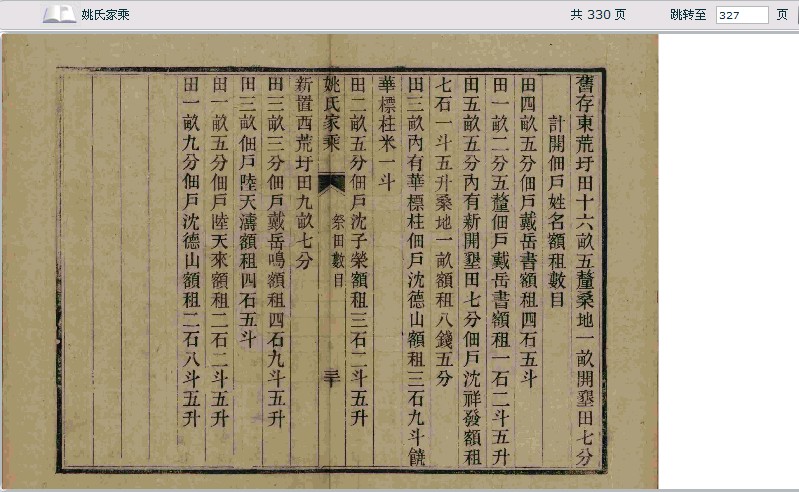 姚氏家乘
共 330 页
跳转至 327 页
舊存東荒圩田十六畝五釐桑地一畝開墾田七分
計開佃戶姓名額租數目
田四畝五分佃戶戴岳書額租四石五斗
田一畝二分五釐佃戶戴岳書額租一石二斗五升
田五畝五分內有新開墾田七分佃戶沈祥發額租
七石一斗五升桑地一畝額租八錢五分
田三畝內有華標柱佃戶沈德山額租三石九斗饒
華標柱米一斗
田二畝五分佃戶沈子榮額租三石二斗五升
姚氏家乘
祭田數目
三十
新置西荒圩田九畝七分
田三畝三分佃戶戴岳鳴額租四石九斗五升
田三畝佃戶陸天濤額租四石五斗
田一畝五分佃戶陸天來額租二石二斗五升
田一畝九分佃戶沈德山額租二石八斗五升